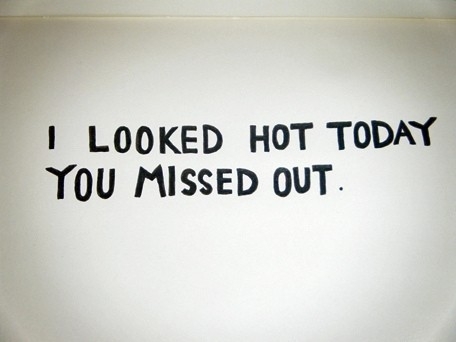 I LOOKED HOT TODAY
YOU MISSED OUT.